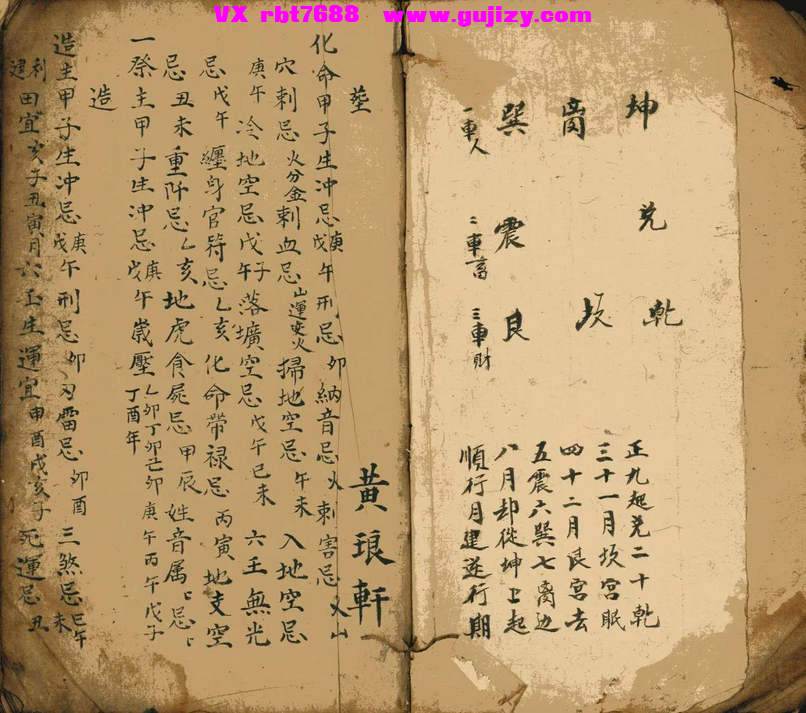 VX rbt7688 www.gujizy.com
坤
兑
乾
离
坎
巽
震
艮
一車人
二車畜
三車財
正九起兑二十乾
三十一月坎宫眠
四十二月艮宫去
五震六巽七离边
八月却從坤上起
順行月建逆行期
黄琅軒
塟
化命甲子生冲忌庚戊午刑忌卯納音忌火刺害忌
穴刺忌火分金刺血忌山運变火掃地空忌午未入地空忌
庚午冷地空忌戊午子落壙空忌戊午巳未六壬無光
忌戊午纏身官符忌乙亥化命帶禄忌丙寅地支空
忌丑未重阡忌乙亥地虎食屍忌甲辰姓音属
一祭主甲子生冲忌庚戊午嵗壓乙卯丁卯己卯庚午丙午戊子丁酉年
造
造主甲子生冲忌庚戊午刑忌卯刃雷忌卯酉三煞忌巳午未
田宜亥子丑寅月六壬生運宜申酉戌亥子死運忌丑